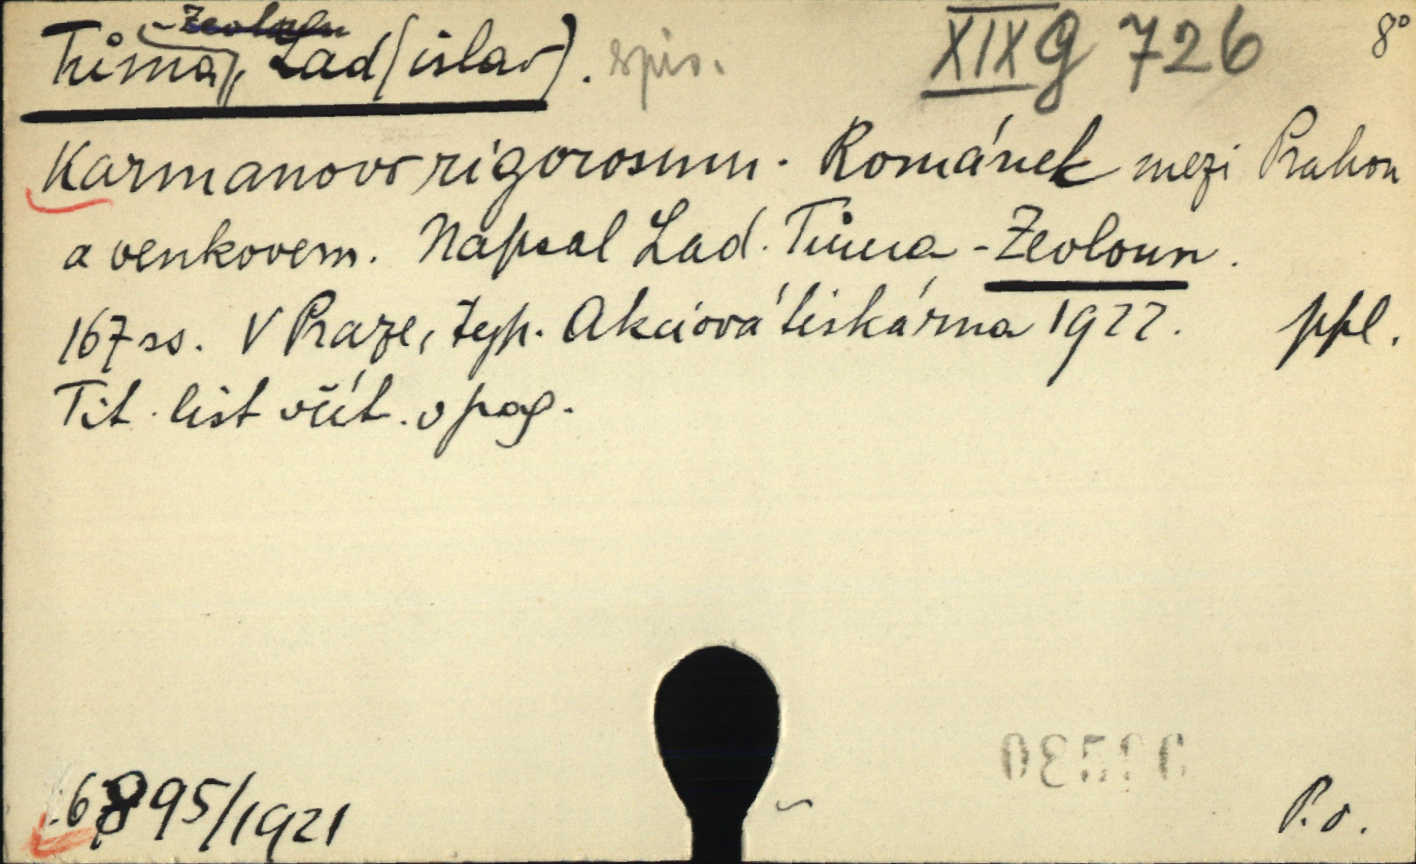 Tůma, Lad(islav). spis. XIX g 726 8°
-Zeoloun
Karmanovo rigorosum. Románek mezi Prahou
a venkovem. Napsal Lad. Tůma-Zevloun.
167 ss. V Praze, typ. Akciová tiskárna 1922. ppl.
Tit. list včít. v pag.
6895/1921
P. v.